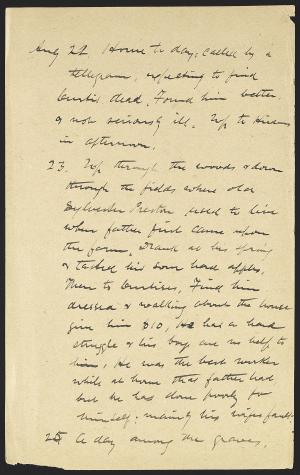 Aug 22 Home to day, called by a
telegram, expecting to find
Curtis dead. Found him better
& not seriously ill. Up to Hirams
in afternoon.
23. Up through the woods & down
through the fields where old
Sylvester Preston used to live
when father first came upon
the farm. Drank at his spring
& tasted his sour hard apples.
Then to Curtises, Find him
dressed & walking about the house
give him $10, He has a hard
struggle & his boys are no help to
him, He was the best worker
while at home that father had
but he has done poorly for
himself; mainly his wifes fault.
25 A day among the graves,